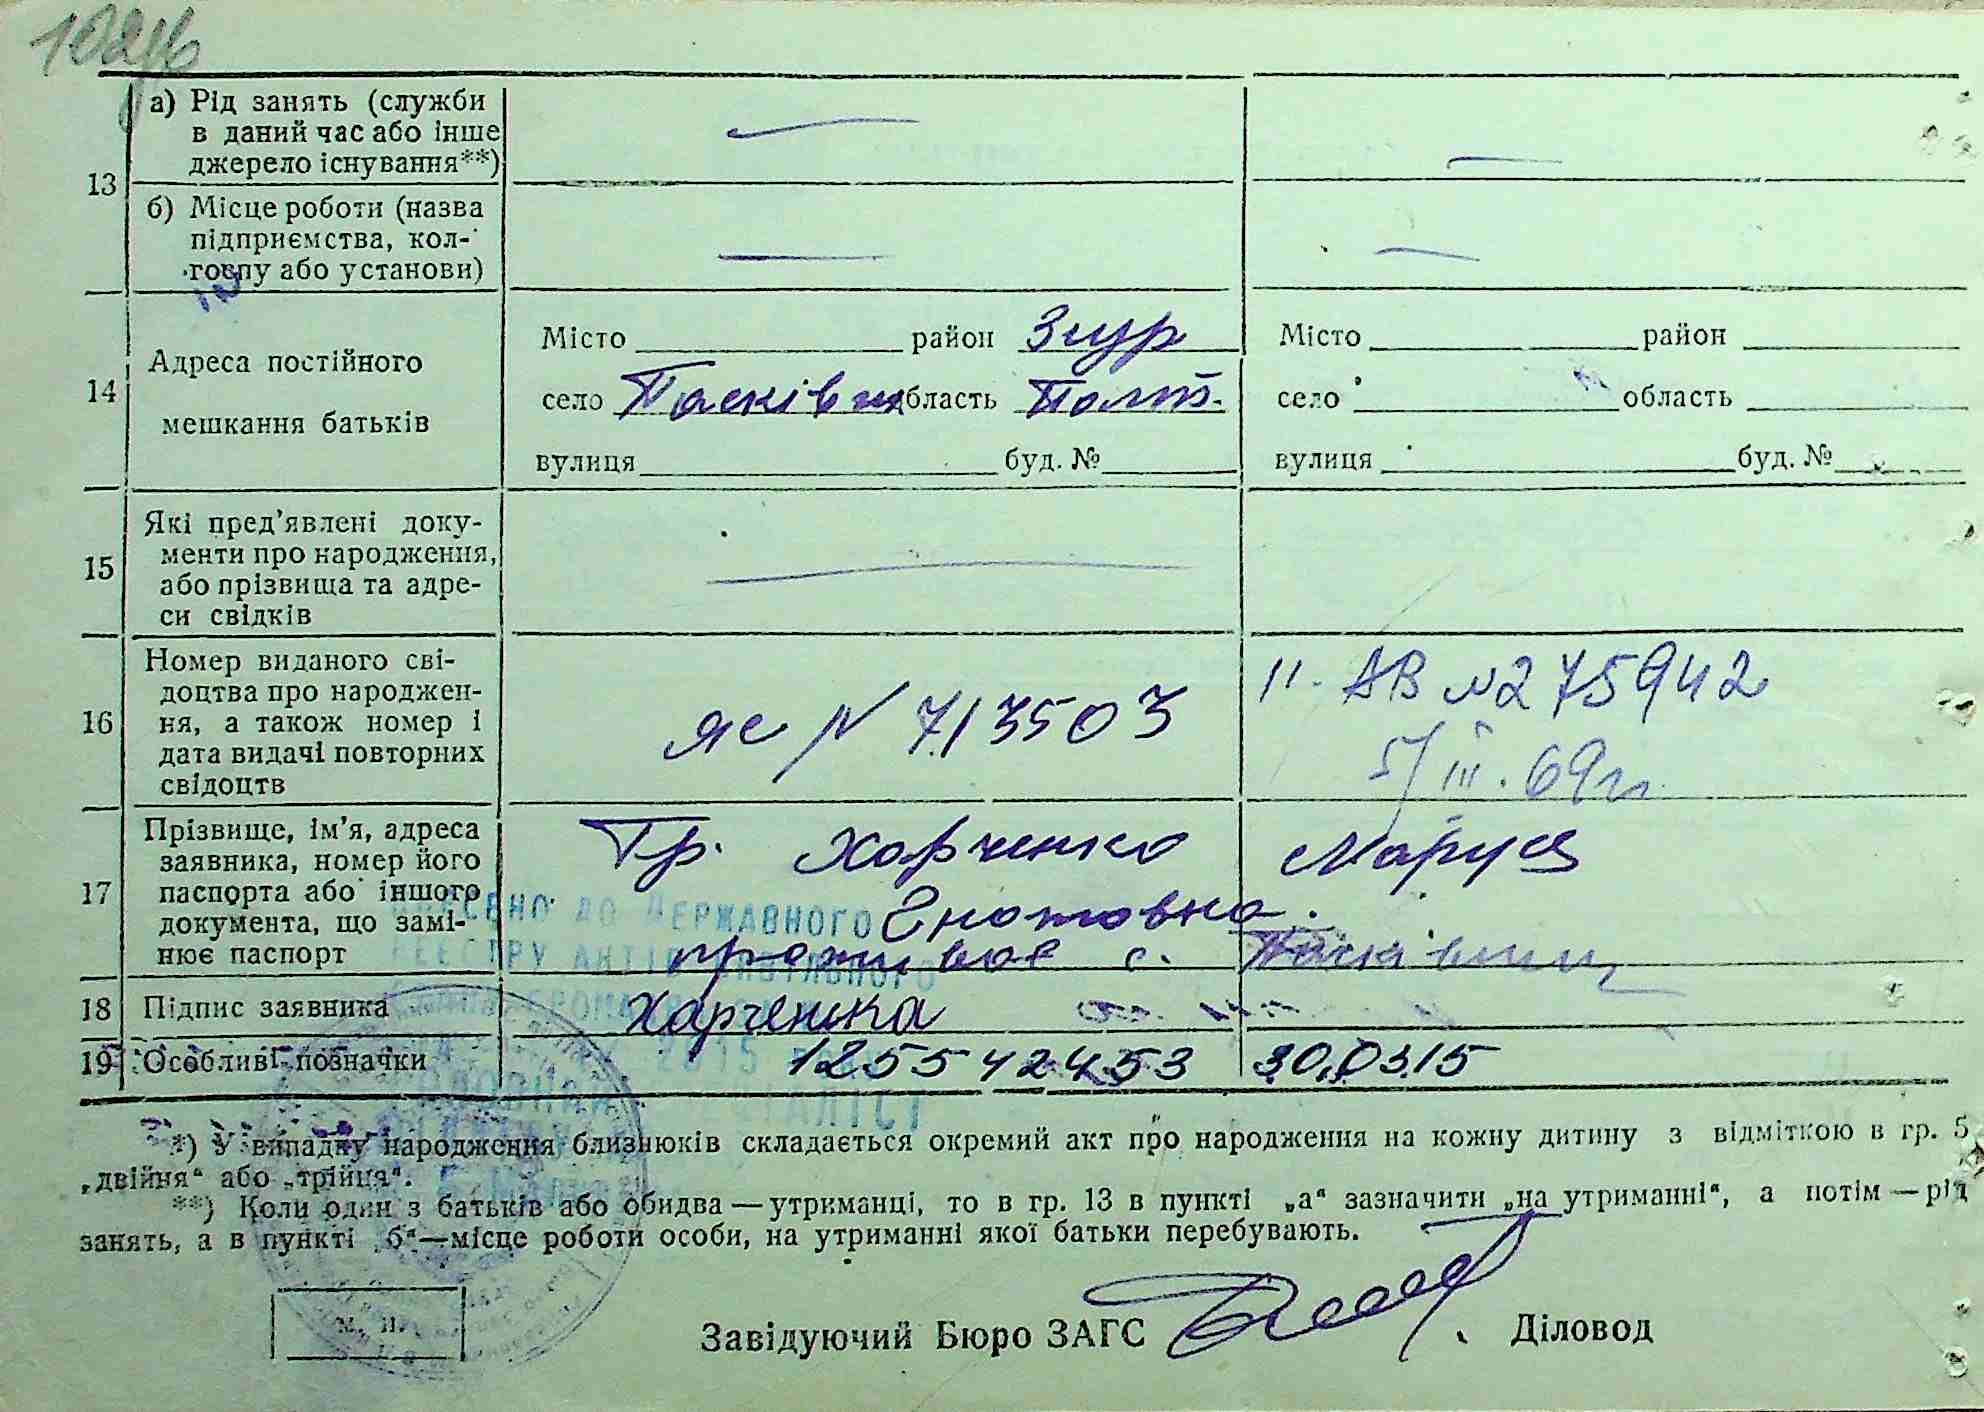 а) Рід занять (служби
в даний час або інше
джерело існування**)
13
б) Місце роботи (назва
підприємства, кол-
госпу або установи)
14
Адреса постійного
мешкання батьків
Місто район Згур
село Пасківщ область Полт.
вулиця буд. №
Місто район
село область
вулиця буд. №
15
Які пред’явлені доку-
менти про народження,
або прізвища та адре-
си свідків
16
Номер виданого сві-
доцтва про народжен-
ня, а також номер і
дата видачі повторних
свідоцтв
яс № 713503
II-АВ №275942
5/III.69г.
17
Прізвище, ім’я, адреса
заявника, номер його
паспорта або іншого
документа, що замі-
нює паспорт
Гр. Харченко Маруся
проживає с. Пасківщина
ВНЕСЕНО ДО ДЕРЖАВНОГО
РЕЄСТРУ АКТІВ ЦИВІЛЬНОГО
18 Підпис заявника Харченка
19 Особливі позначки 1255542453 30.03.15
2015
ГОЛОВНИЙ СПЕЦІАЛІСТ
*) У випадку народження близнюків складається окремий акт про народження на кожну дитину з відміткою в гр. 5
„двійня“ або „трійня“.
**) Коли один з батьків або обидва — утриманці, то в гр. 13 в пункті „а“ зазначити „на утриманні“, а потім — рід
занять, а в пункті „б“—місце роботи особи, на утриманні якої батьки перебувають.
М. П.
Завідуючий Бюро ЗАГС
Діловод